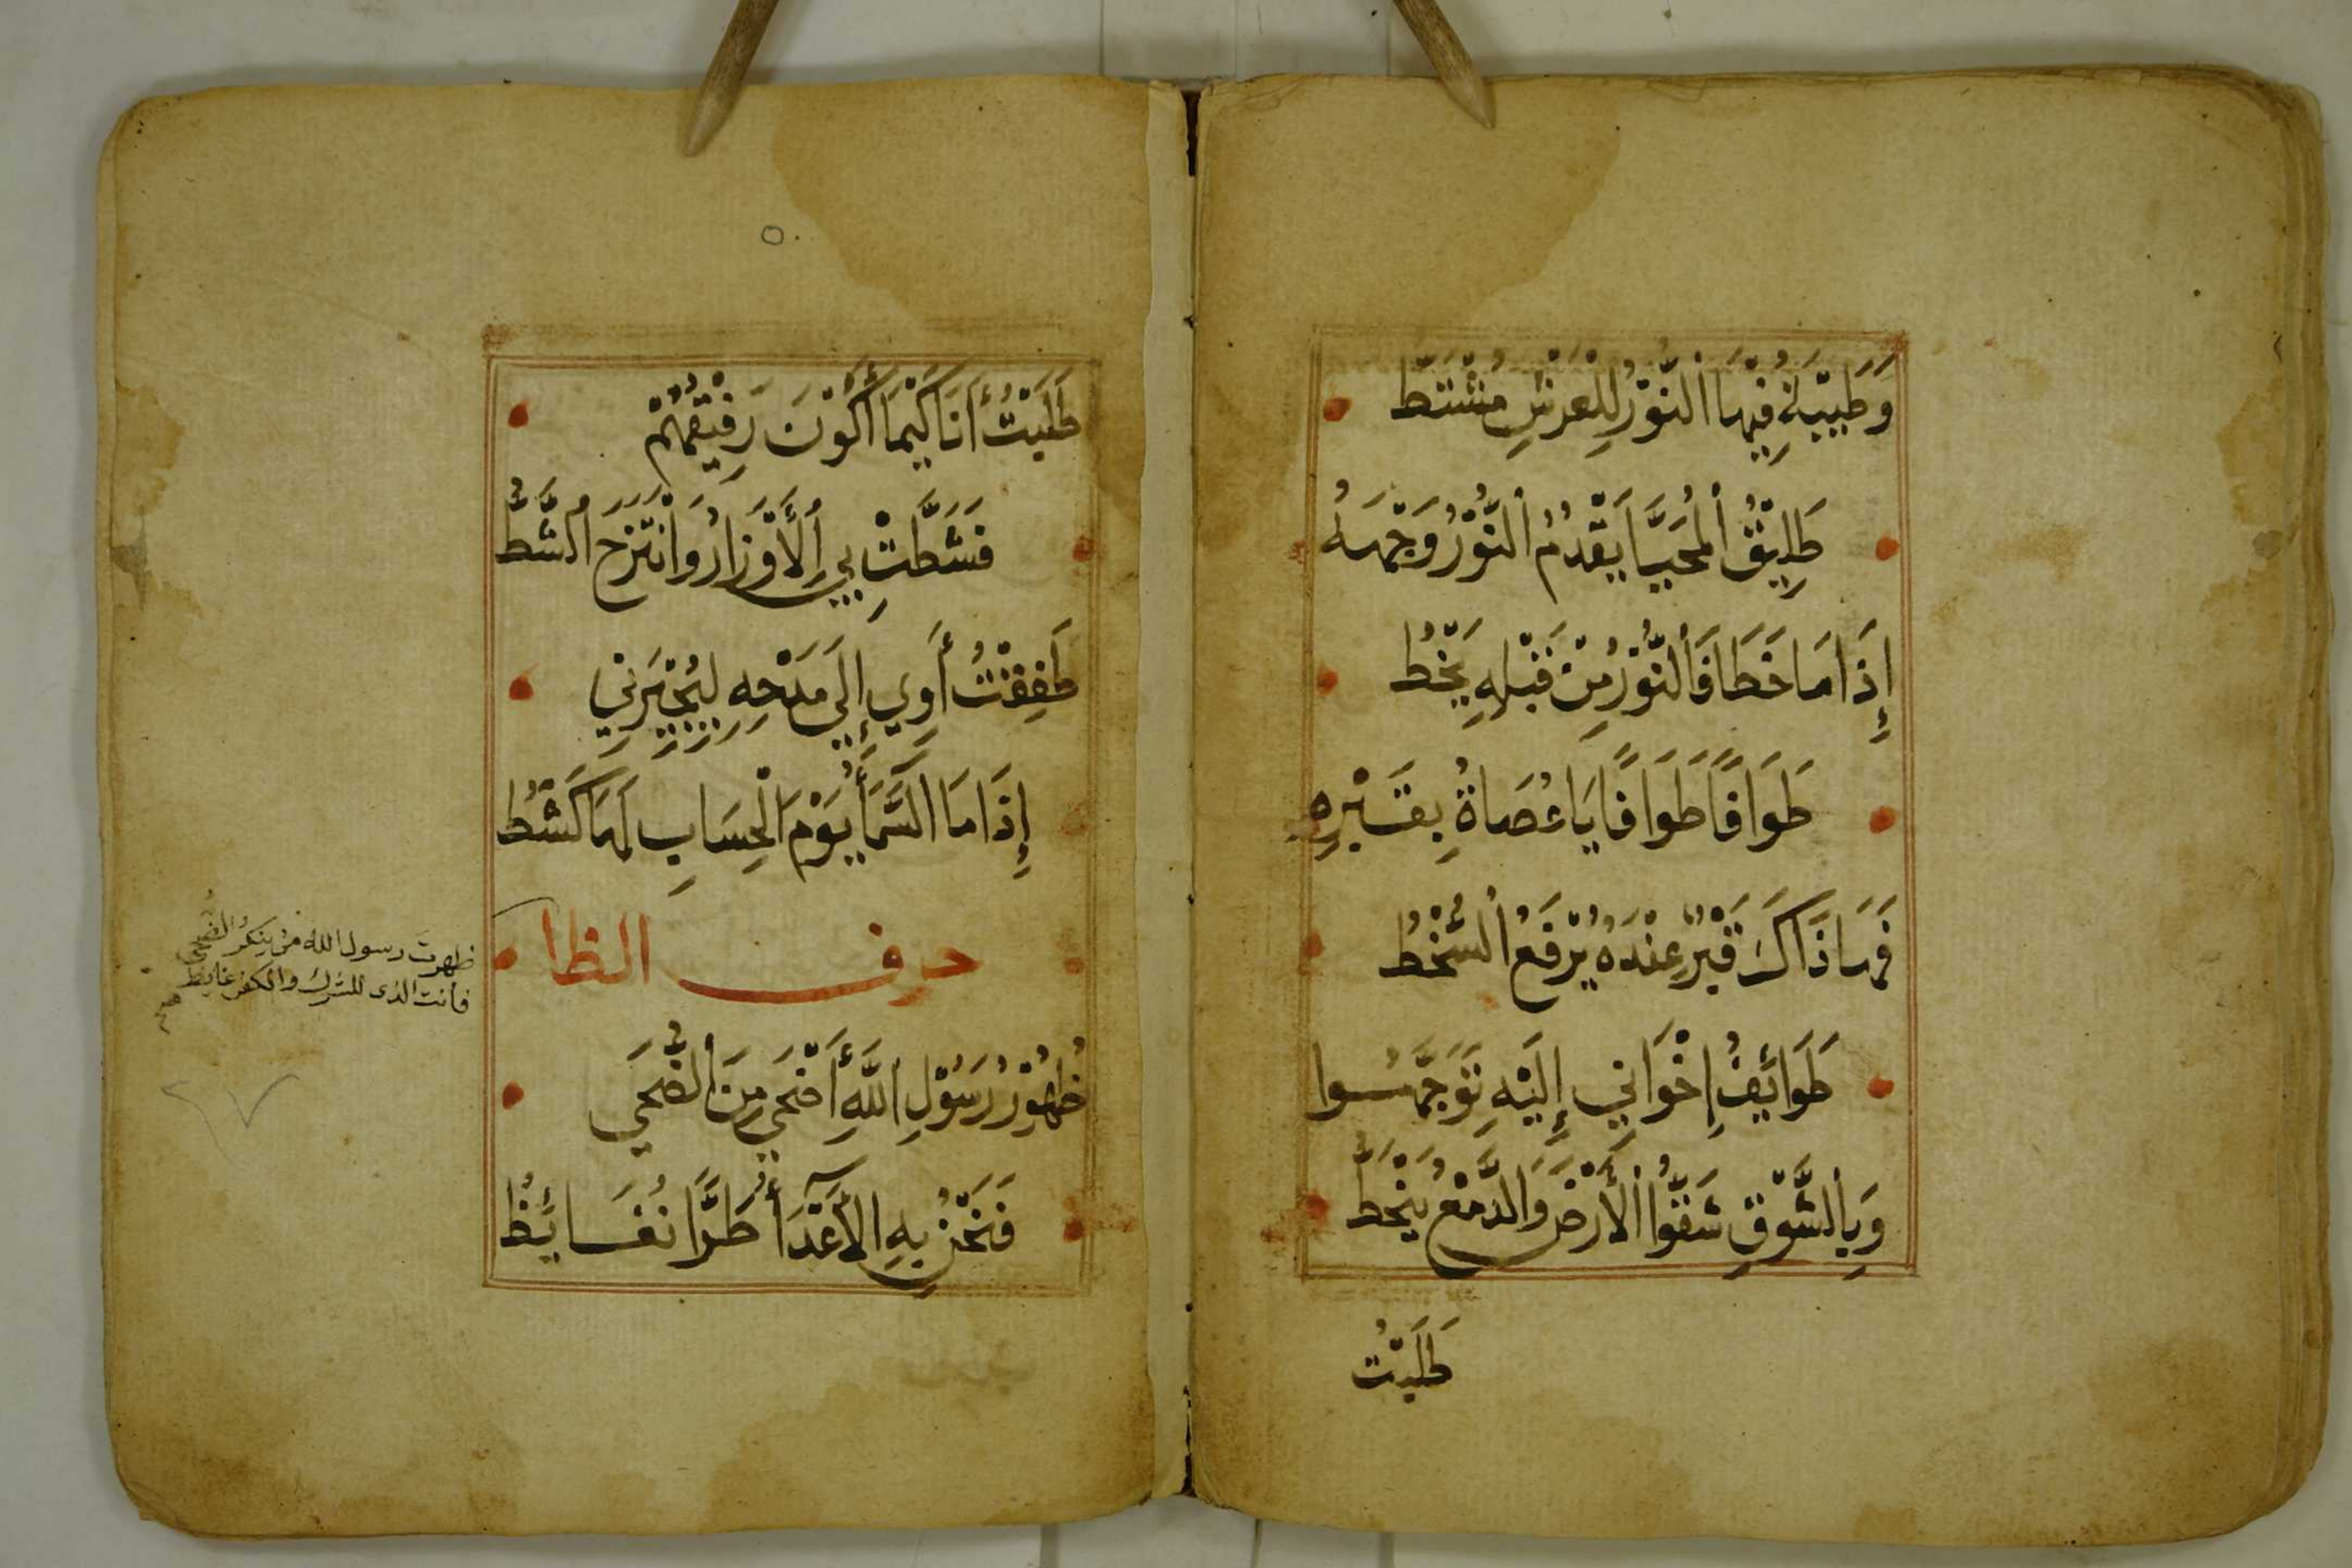 وَطَيْبَةُ فِيهَا النُّوْرُ لِلْعَرْشِ مُشْتَطُّ
طَلِيْقُ الْمُحَيَّا يَقْدُمُ النُّوْرُ وَجْهَهُ
إِذَا مَا خَطَا فَالنُّوْرُ مِنْ قَبْلِهِ يَخْطُ
طَوَافًا طَوَافًا يَا عُصَاةُ بِقَبْرِهِ
فَهَاذَاكَ قَبْرٌ عِنْدَهُ يُرْفَعُ السُّخْطُ
طَوَائِفُ إِخْوَانِي إِلَيْهِ تَوَجَّهُوا
وَبِالشَّوْقِ شَقُّوا الْأَرْضَ وَالدَّمْعُ يَنْحَطُّ
طَلَبْتُ
طَلَبْتُ أَنَا كَيْمَا أَكُوْنَ رَفِيْقَهُمْ
فَشَطَّتْ بِيَ الْأَوْزَارُ وَانْتَزَحَ الشَّطُّ
طَفِقْتُ أَوِي إِلَى مَدْحِهِ لِيُجِيْرَنِي
إِذَا مَا السَّمَاءُ يَوْمَ الْحِسَابِ لَهَا كَشْطُ
حرف الظا
ظُهُوْرُ رَسُوْلِ اللَّهِ أَضْحَى مِنَ الضُّحَى
فَنَحْنُ بِهِ الْأَعْدَاءُ طُرًّا نُغَايِظُ
ظهرت رسول الله من ينكر الضحى
فانت الذى للشرك والكفر غايظ